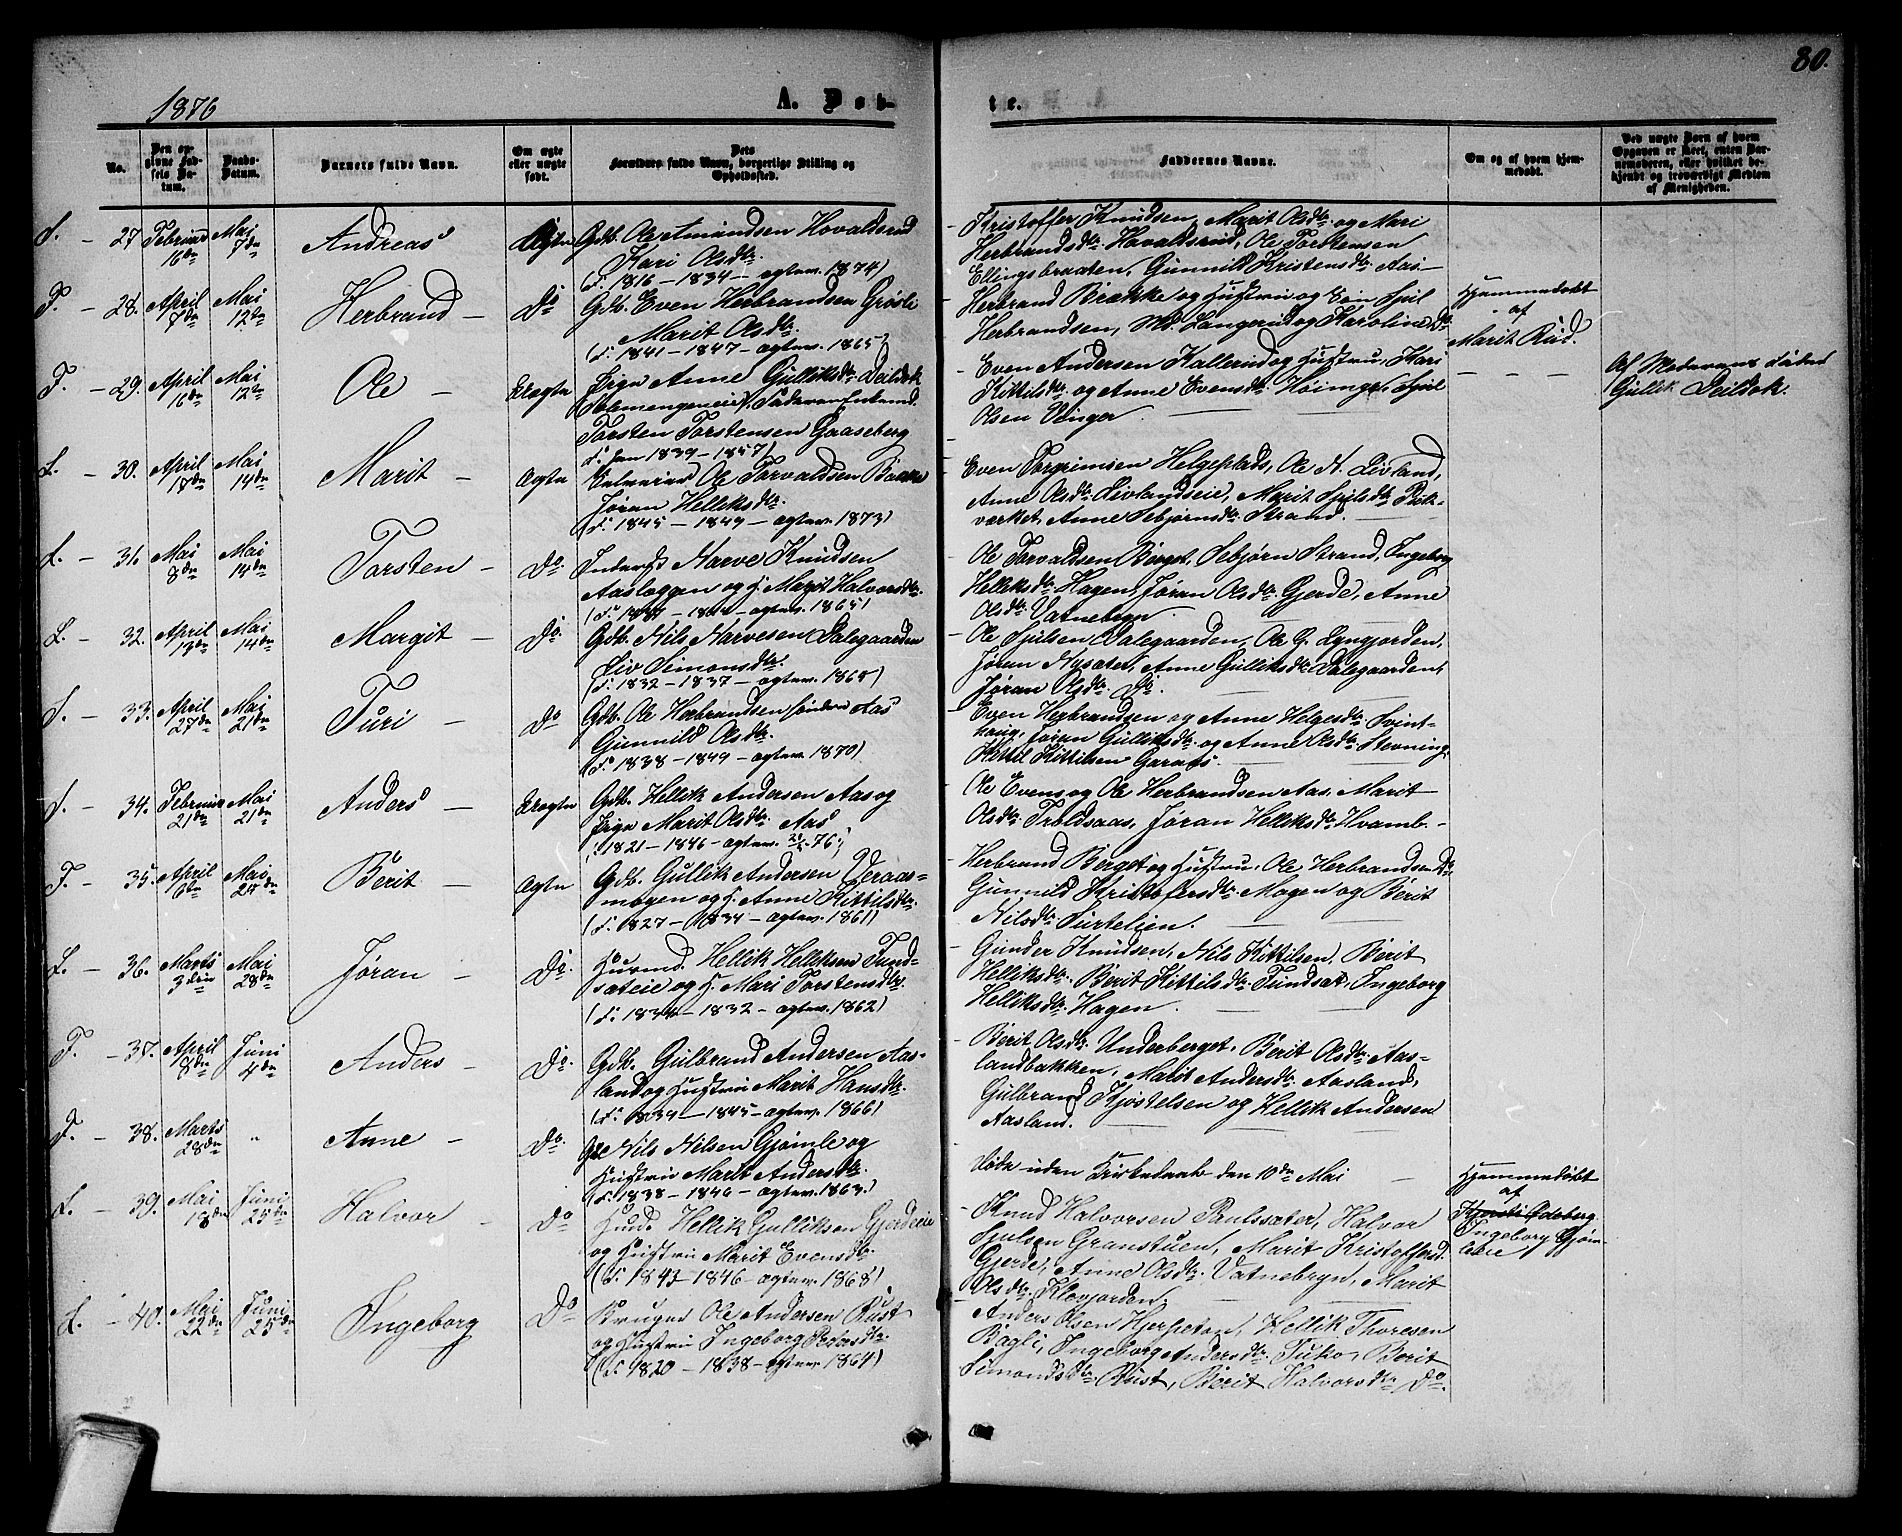 80.
1876
A. Døb-
te.
No.
Den op-
givne Fød-
sels Da-
tum.
Daabs-
Datum.
Barnets fulde Navn.
Om ægte
eller uægte
født.
Dets
Forældres fulde Navn, borgerlige Stilling og
Opholdssted.
Faddernes Navne.
Om og af hvem hjem-
medøbt.
Ved uægte Børn af hvem
Opgaven er skeet, enten Bar-
nemoderen, eller hvilket be-
kjendt og troværdigt Medlem
af Menigheden.
27. Februar 16de Mai 7de Andreas Ægte Gdb. Ole Amundsen Hovaldsrud
Kari Olsdtr.
(f. 1816 – 1834 – ægtev. 1874)
Kristoffer Knudsen, Marit Olsdtr. og Mari
Herbrandsdtr. Hovaldsrud, Ole Torstensen
Ellingsbraaten, Gunnild Kristensdtr. Aas
F. – 28. April 7de Mai 12te Herbrand – Do Gdb. Even Herbrandsen Grøsli
Marit Olsdtr.
(f. 1841 – 1847 – ægtev. 1865)
Herbrand Brække og Hustru og Søn Sjul
Herbrandsen, Langerud og Karoline Do
Hjemmedøbt
af
Marit Rud.
F. – 29. April 16de Mai 12te Ole – Uægte Pige Anne Gulliksdtr. Deildok
Ungkarl
Torsten Torstensen Gaaseberg
(f. han 1839 – 1857)
Even Andersen Kallerud og Hustru, Kari
Kittilsdtr. og Anne Evensdtr. Høimyr, Sjul
Olsen Venger
Af Moderens Fader
Gullik Deildok.
L. – 30. April 18de Mai 14de Marit – Ægte Ole Torvaldsen Bakke
Jøran Helliksdtr.
(f. 1845 – 1849 – ægtev. 1873)
Even Torgrimsen Helgeplads, Ole N. Livland,
Anne Olsdtr. Livlandseie, Marit Sjulsdtr. Bek-
værket, Anne Sebjørnsdtr. Strand.
L. – 31. Mai 8de Mai 14de Torsten – Do. Inderst Narve Knudsen
Aasloggen og H. Marit Halvorsdtr.
ægtev. 1865)
Ole Torvaldsen Børget, Sebjørn Strand, Ingeborg
Helliksdtr. Hagen, Jøran Olsdtr. Gjerde, Anne
Olsdtr. Vatnebryn
L. – 32. April 13de Mai 14de Margit – Do. Gdb. Nils Narvesen Dalegaarden
Liv Simonsdtr.
(f. 1832 – 1837 – ægtev. 1868)
Ole Sjulsen Dalegaarden, Ole G. Lyngjorden,
Jøran Nysæter, Anne Gulliksdtr. Dalegaarden,
Jøran Olsdtr. Do.
33. April 27de Mai 21de Turi – Do Gdb. Ole Herbrandsen søndre Aas
Gunnild Olsdtr.
(f. 1838 – 1849 – ægtev. 1870)
Even Herbrandsen og Anne Helgesdtr. Svint-
haug, Jøran Gulliksdtr. og Anne Olsdtr. Stevning,
Kittil Kittilsen Garaas.
34. Februar 21de Mai 21de Anders – Uægte Gdb. Hellik Andersen Aas og
Pige Marit Olsdtr. Aas
(f. 1821 – 1846 – ægtev. 76.)
Ole Evens. og Ole Herbrandsen Aas, Marit
Olsdtr. Troldsaas, Jøran Helliksdtr. Hvamb. –
F. – 35. April 6te Mai 25de Berit – Ægte Gdb. Gullik Andersen Veraas-
mogen og H. Anne Kittilsdtr.
(f. 1827 – 1834 – ægtev. 1861)
Herbrand Berget og Hustru, Ole Herbrandsen Do
Gunnild Kristofersdtr. Mogen og Berit
Nilsdtr. Surtelien.
L. – 36. Marts 3die Mai 28de Jøran – Do. Husmd. Hellik Helliksen Fund-
sæteie og H. Mari Torstensdtr.
(f. 1834 – 1832 – ægtev. 1862)
Gunder Knudsen, Nils Kittilsen, Berit
Helliksdtr. Berit Kittilsdtr. Fundsæt, Ingeborg
Helliksdtr. Hagen.
F. – 37. April 8de Juni 4de Anders – Do. Gdb. Gulbrand Andersen Aas-
land og Hustru Marit Hansdtr.
(f. 1839 – 1845 – ægtev. 1866)
Berit Olsdtr. Underberget, Berit Olsdtr. Aas-
landbakken, Marit Andersdtr. Aasland,
Gulbrand Kjøstelsen og Hellik Andersen
Aasland.
F. – 38. Marts 28de „ Anne – Do. Nils Nilsen Gjømle og
Hustru Marit Andersdtr.
(f. 1838 – 1846 – ægtev. 1863.)
Døde uden Kirkedaab den 10de Mai –
Hjemmedøbt
af
Kjersti Ødeberg
Ingeborg Gjøm-
leie
L. – 39. Mai 18de Juni 25de Halvor – Do Husmd. Hellik Gulliksen Gjerdeeie
og Hustru Marit Evensdtr.
(f. 1843 – 1846 – ægtev. 1868)
Knud Halvorsen Paulssæter, Halvor
Sjulsen Granstuen, Marit Kristoffersd.
Gjerde, Anne Olsdtr. Vatnebryn, Marit
Olsdtr. Kløvjorden
L. – 40. Mai 22de Juni 25de Ingeborg Do Bruger Ole Andersen Rust
og Hustru Ingeborg Pedersdtr.
(f. 1820 – 1838 – ægtev. 1864)
Anders Olsen Hjerpeton, Hellik Thoresen
Bagli, Ingeborg Andersdtr. Tuko, Berit
Simonsdtr. Rust, Berit Halvorsdtr. Do.